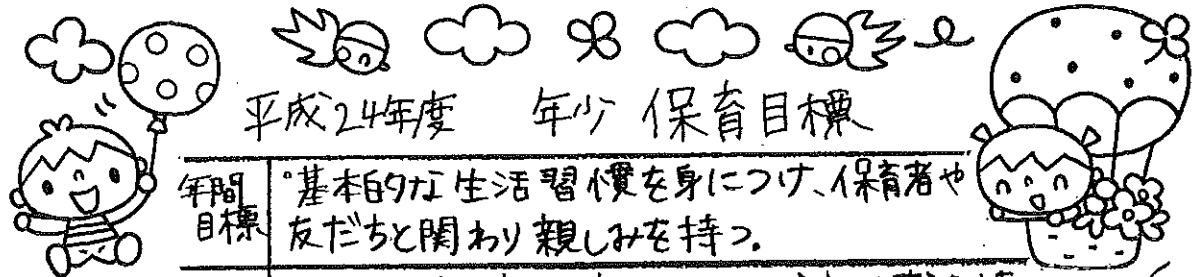 平成24年度 年少 保育目標
年間目標
°基本的な生活習慣を身につけ、保育者や
友だちと関わり親しみを持つ。